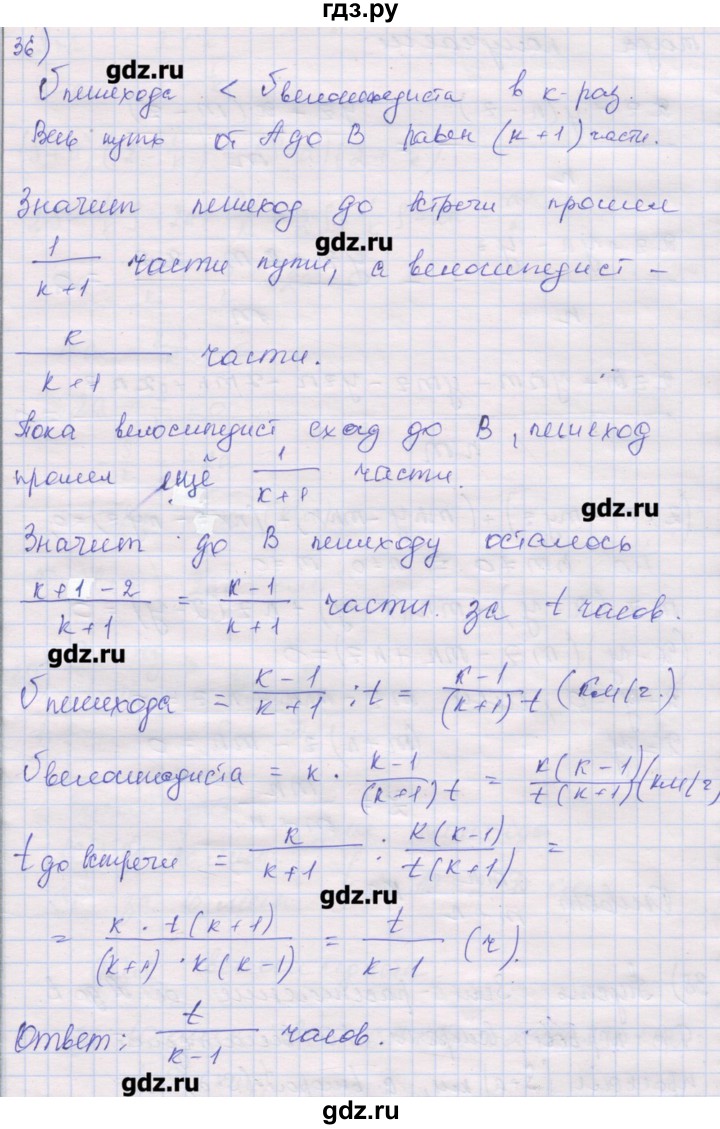 гдз.ру
36)
гдз.ru
υ пешехода < υ велосипедиста в к-раз.
Весь путь от А до В равен (к+1) части.
Значит пешеход до встречи прошел
gdz.ru
1/(к+1) части пути, а велосипедист –
к/(к+1) части.
Пока велосипедист ехад до В, пешеход
прошел ещё 1/(к+1) части.
gdz.ru
Значит до В пешеходу осталось
(к+1-2)/(к+1) = (к-1)/(к+1) части за t часов.
gdz.ru
υ пешехода = (к-1)/(к+1) : t = (к-1)/((к+1)t) (км/ч.)
υ велосипедиста = к · (к-1)/((к+1)t) = к(к-1)/(t(к+1)) (км/ч)
t до встречи = к/(к+1) : к(к-1)/(t(к+1)) =
gdz.ru
= к·t(к+1)/((к+1)·к(к-1)) = t/(к-1) (ч).
Ответ: t/(к-1) часов.
gdz.ru
gdz.ru